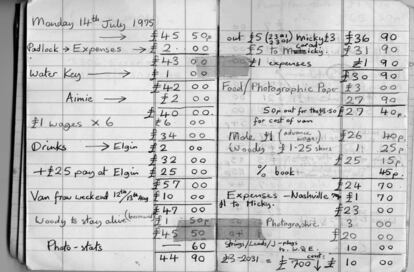 Monday 14th July 1975
→ £45 50p
Padlock → Expenses → £2 . 00
£43 00
Water Key → £1 00
£42 00
Aimie → £2 00
£40 00
£1 wages × 6 £6 00
£34 00
Drinks → Elgin £2 00
£32 00
+ £25 pay at Elgin £25 00
£57 00
Van from weekend 12th/13th £10 00
£47 00
Woody to stay alive £1 50p
£45 50
Photo-stats — 60
44 90
out £5 Micky £3 £36 90
£5 to £31 90
£1 expenses £1 90
£30 90
Food/Photographic Pape £3 00
27 90
50p out for
for cost of van £27 40p
Mole £1 (advance wage) £26 40
Woody £1.25 1 25
£25 15p
% book 45p
£24 70
Expenses – Nashville £1 70
£1 to Micky. £23 00
Photographic 3 00
£20 00
Strings/Leads/J-plugs 10 00
£10 00